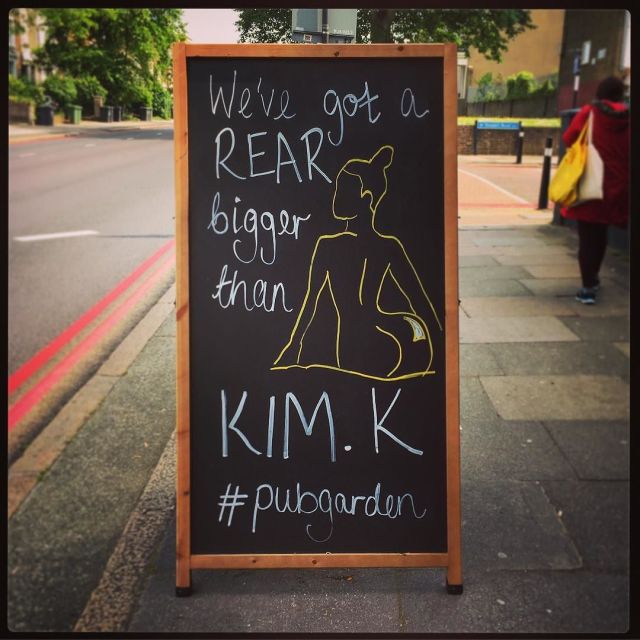 We've got a
REAR
bigger
than
KIM. K
#pubgarden